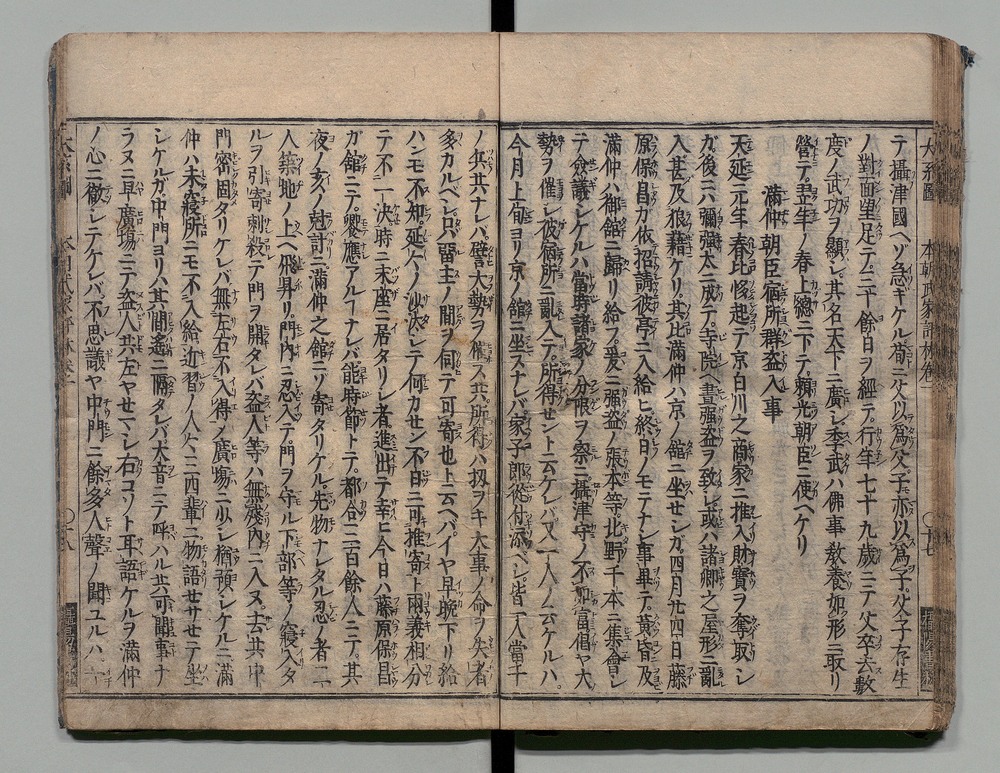 テ攝津國ヘゾ急ギケル荀ニ父以爲父子亦以爲子父子存生
ノ對面望足テ二千餘日ヲ經テ行年七十九歳ニテ父卒去數
度ノ武功ヲ顯シ其名天下ニ廣シ季武ハ佛事教養如形ニ取リ
營テ翌年ノ春上總ニ下テ頼光朝臣ニ使ヘケリ
滿仲朝臣宿所群盗入事
天延元年ノ春比ヨリ起テ京白川之商家ニ推入財寶ヲ奪取シ
ガ後ニハ彌強大ニ成テ寺院ヘ晝強盗ヲ致シ或ハ諸卿之屋形ニ亂
入甚及狼藉ケリ其比滿仲ハ京ノ舘ニ坐セシガ四月廿四日藤
原保昌ガ依招請彼亭ニ入給ヒ終日ノモテナシ事畢テ黄昏及
滿仲ハ御舘ニ歸リ給フ爰ニ強盗ノ張本等北野千本ニ集會シ
テ僉議シケルハ當時諸家ノ分限ヲ察ニ攝津守ノ不如富倡ヤ大
勢ヲ催シ彼宿所ニ亂入テ所得セント云ケレバ又一人ノ云ケルハ
今月上旬ヨリ京ノ舘ニ坐スナレバ家子郎從付添ベシ皆一人當千
ノ兵共ナレバ譬大勢ヲ催ス共所得ハ扨ヲキ大事ノ命ヲ失者
多カルベシ只留主ノ間ヲ伺テ可寄也ト云ヘバイヤ早晩下リ給
ハンモ不知延々ノ沙汰シテ何カセン不日ニ可推寄ト兩義相分
テ不一決時ニ末座ニ居タリシ者進出テ幸ニ今日ハ藤原保昌
ガ舘ニテ饗應アルナレバ能時節トテ都合二百餘人ニテ其
夜ノ亥ノ尅計ニ滿仲之舘ニゾ寄タリケル先物ナレタル忍ノ者二
人築地ノ上ヘ飛昇リ門内ニ忍入テ門ヲ守ル下部等ノ寢入タ
ルヲ引寄刺殺テ門ヲ開タレバ盗人等ハ無殘内ニ入ヌ去共中
門密固タリケレバ無左右不入得ノ廣塲ニ以シ猶預シケルニ滿
仲ハ未寢所ニモ不入給近習ノ人々三四輩ニ物語セサセテ坐
シケルガ中門ヨリハ其間遙ニ隔タレバ大音ニテ呼ハル共可聞事ナ
ラヌニ早廣塲ニテ盗人共左ヤセマシ右コソト耳語ケルヲ滿仲
ノ心ニ徹シテケレバ不思議ヤ中門ニ餘多人聲ノ聞ユルハ